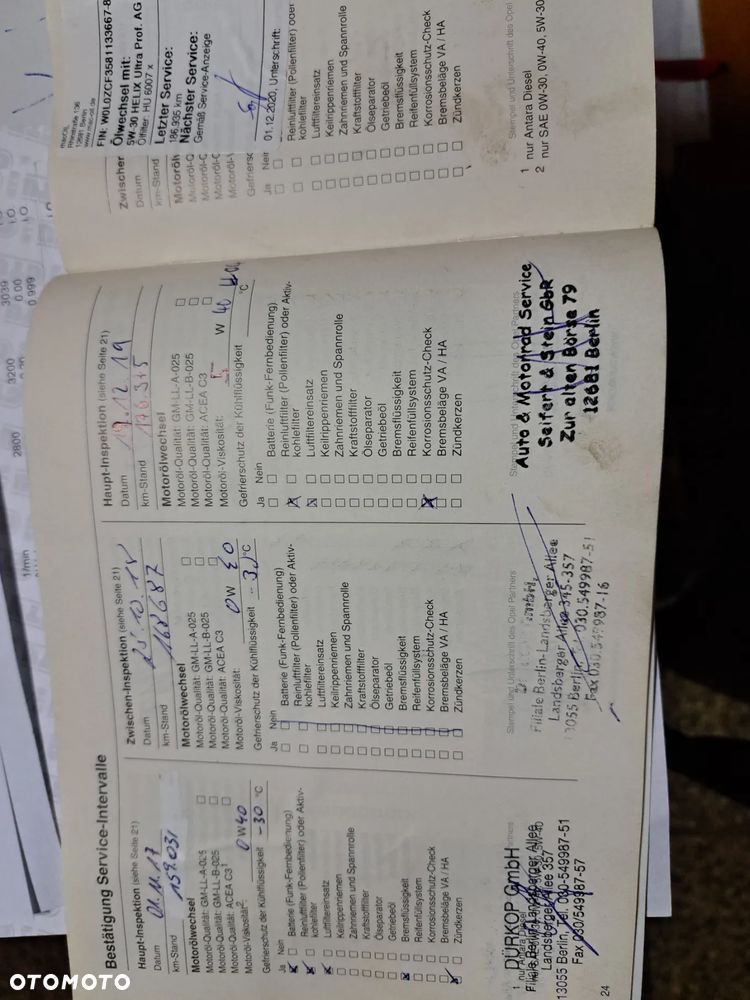 Bestätigung Service-Intervalle
Haupt-Inspektion (siehe Seite 21)
Datum 01.11.17
km-Stand 159.031
Motorölwechsel
Motoröl-Qualität: GM-LL-A-025
Motoröl-Qualität: GM-LL-B-025
Motoröl-Qualität: ACEA C3 1
Motoröl-Viskosität: 2 0W40
Gefrierschutz der Kühlflüssigkeit -30 °C
Ja Nein
Batterie (Funk-Fernbedienung)
Reinluftfilter (Pollenfilter) oder Aktiv-
kohlefilter
Luftfiltereinsatz
Keilrippenriemen
Zahnriemen und Spannrolle
Kraftstofffilter
Ölseparator
Getriebeöl
Bremsflüssigkeit
Reifenfüllsystem
Korrosionsschutz-Check
Bremsbeläge VA / HA
Zündkerzen
DÜRKOP GmbH
Filiale Berlin-Landsberger Allee
Landsberger Allee 357
13055 Berlin, Tel. 030-549987-51
Fax 030/549987-57
1 nur Antara Diesel
24
Zwischen-Inspektion (siehe Seite 21)
Datum
km-Stand
Motorölwechsel
Motoröl-Qualität: GM-LL-A-025
Motoröl-Qualität: GM-LL-B-025
Motoröl-Qualität: ACEA C3
Motoröl-Viskosität: 0W
Gefrierschutz der Kühlflüssigkeit °C
Ja Nein
Batterie (Funk-Fernbedienung)
Reinluftfilter (Pollenfilter) oder Aktiv-
kohlefilter
Luftfiltereinsatz
Keilrippenriemen
Zahnriemen und Spannrolle
Kraftstofffilter
Ölseparator
Getriebeöl
Bremsflüssigkeit
Reifenfüllsystem
Korrosionsschutz-Check
Bremsbeläge VA / HA
Zündkerzen
Stempel und Unterschrift des Opel Partners
Filiale Berlin-Landsberger Allee
Landsberger Allee 345-357
13055 Berlin, 030.549987-51
Fax 030.549987-16
Haupt-Inspektion (siehe Seite 21)
Datum 19.12.19
km-Stand
Motorölwechsel
Motoröl-Qualität: GM-LL-A-025
Motoröl-Qualität: GM-LL-B-025
Motoröl-Qualität: ACEA C3
Motoröl-Viskosität: W 40
Gefrierschutz der Kühlflüssigkeit °C
Ja Nein
Batterie (Funk-Fernbedienung)
Reinluftfilter (Pollenfilter) oder Aktiv-
kohlefilter
Luftfiltereinsatz
Keilrippenriemen
Zahnriemen und Spannrolle
Kraftstofffilter
Ölseparator
Getriebeöl
Bremsflüssigkeit
Reifenfüllsystem
Korrosionsschutz-Check
Bremsbeläge VA / HA
Zündkerzen
Stempel und Unterschrift des Opel Partners
Auto & Motorrad Service
Seifert & Stein GbR
Zur alten Börse 79
12681 Berlin
Zwischen
Datum
km-Stand
Motoröl
Motoröl-Q
Motoröl-Q
Motoröl-Q
Gefriersc
12681 Berlin
FIN: W0L0ZCF3581133667-8
Ölwechsel mit:
5W-30 HELIX Ultra Prof. AG
Ölfilter: HU 6007 x
Letzter Service:
186.935 km
Nächster Service:
Gemäß Service-Anzeige
01.12.2020, Unterschrift:
Ja Nein
Reinluftfilter (Pollenfilter) oder
kohlefilter
Luftfiltereinsatz
Keilrippenriemen
Zahnriemen und Spannrolle
Kraftstofffilter
Ölseparator
Getriebeöl
Bremsflüssigkeit
Reifenfüllsystem
Korrosionsschutz-Check
Bremsbeläge VA / HA
Zündkerzen
Stempel und Unterschrift des Opel
1 nur Antara Diesel
2 nur SAE 0W-30, 0W-40, 5W-30
1/min
2800
3200
3039
0.00
0.999
OTOMOTO